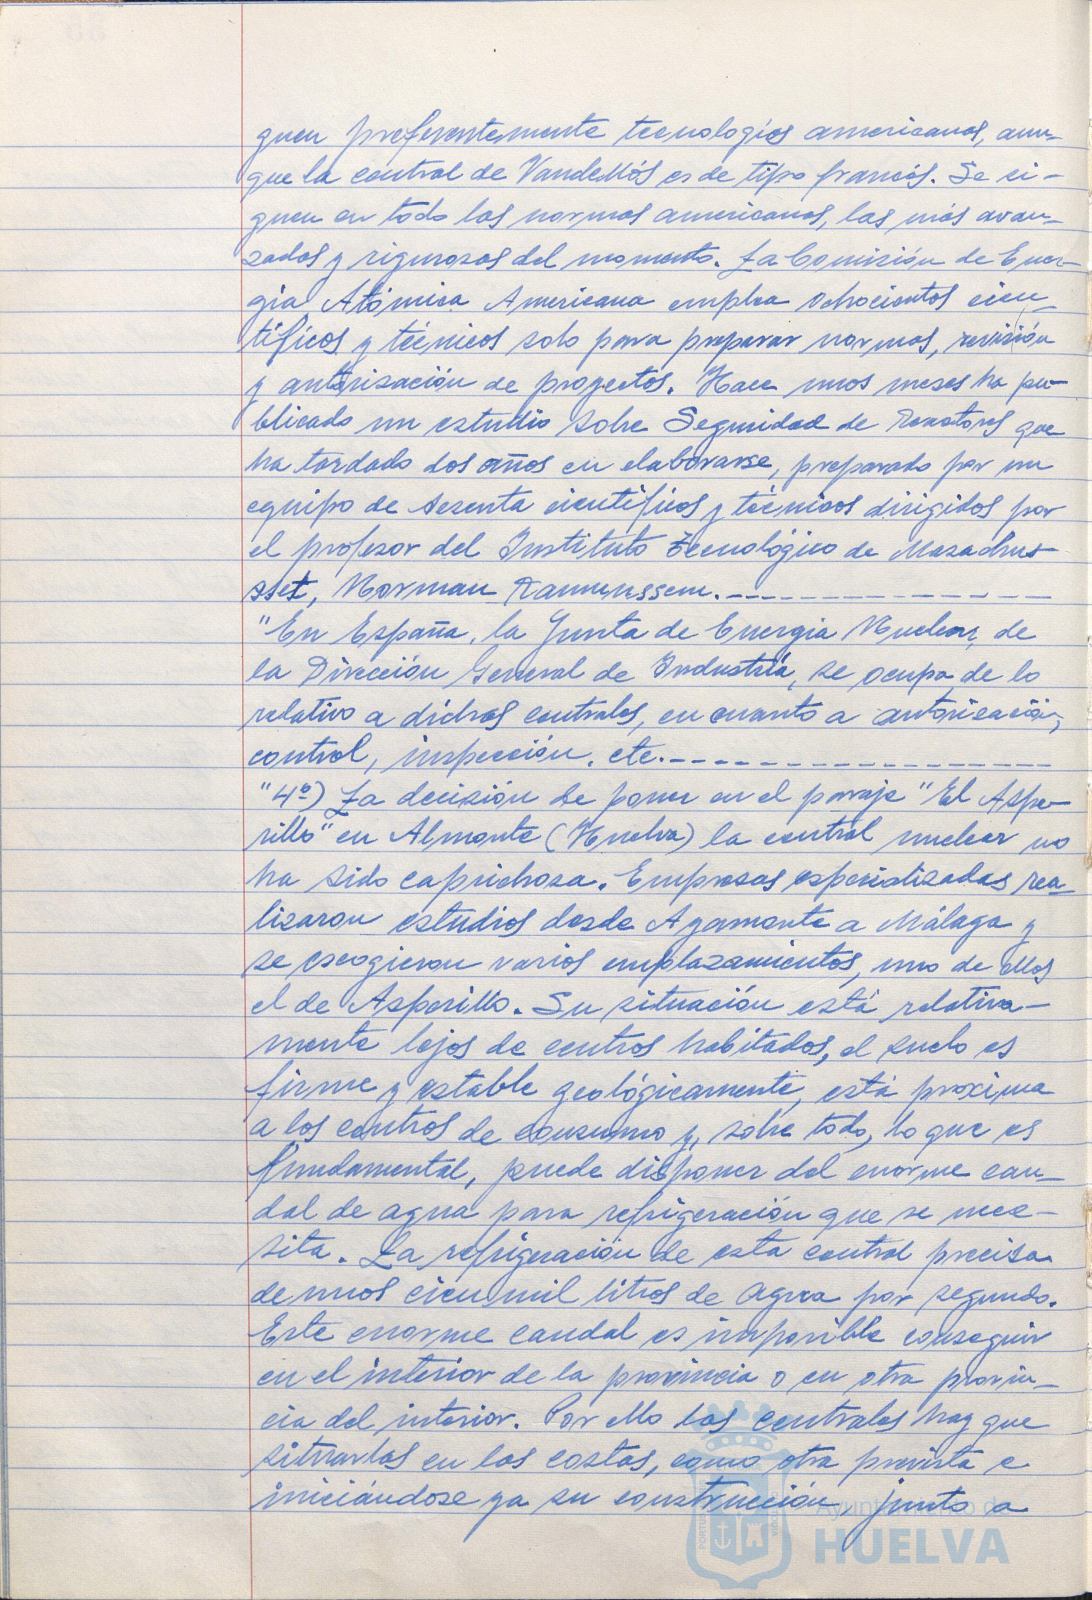 guen preferentemente tecnologías americanas, aun-
que la central de Vandellós es de tipo francés. Se si-
guen en todo las normas americanas, las más avan-
zadas y rigurosas del momento. La Comisión de Ener-
gía Atómica Americana emplea ochocientos cien-
tíficos y técnicos solo para preparar normas, revisión
y autorización de proyectos. Hace unos meses ha pu-
blicado un estudio sobre Seguridad de Reactores que
ha tardado dos años en elaborarse, preparado por un
equipo de sesenta científicos y técnicos dirigidos por
el profesor del Instituto tecnológico de Masachus-
sset, Norman Rasmussem.
"En España, la Junta de Energia Nuclear, de
la Dirección General de Industria, se ocupa de lo
relativo a dichas centrales, en cuanto a autorización,
control, inspección, etc.
"4º) La decisión de poner en el paraje "El Aspe-
rillo" en Almonte (Huelva) la central nuclear no
ha sido caprichosa. Empresas especializadas rea-
lizaron estudios desde Ayamonte a Málaga y
se escogieron varios emplazamientos, uno de ellos
el de Asperillo. Su situación está relativa-
mente lejos de centros habitados, el suelo es
firme y estable geológicamente, está proxima
a los centros de consumo y, sobre todo, lo que es
fundamental, puede disponer del enorme cau-
dal de agua para refrigeración que se nece-
sita. La refrigeración de esta central precisa
de unos cien mil litros de agua por segundo.
Este enorme caudal es imposible conseguir
en el interior de la provincia o en otra provin-
cia del interior. Por ello las centrales hay que
situarlas en las costas, como otra prevista e
iniciándose ya su construcción, junto a
Ayuntamiento de
HUELVA